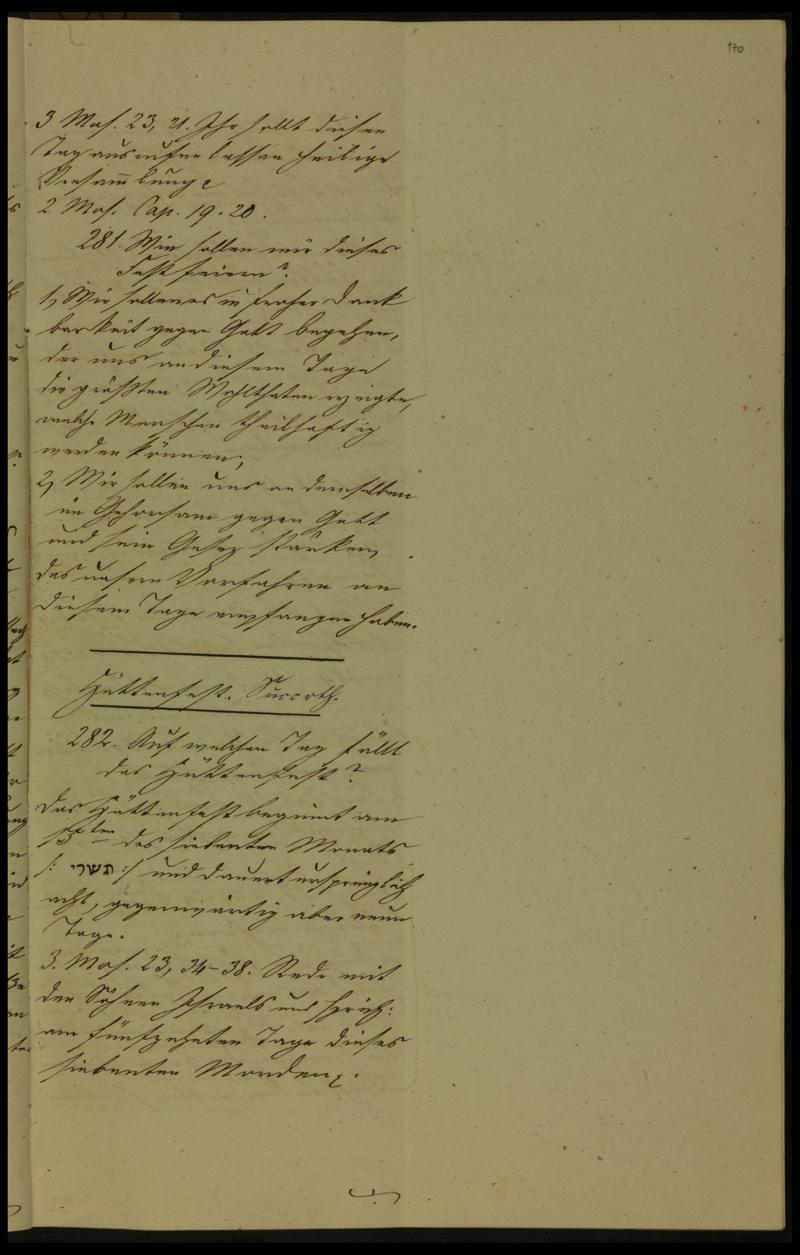 170
3 Mos. 23, 21. Ihr sollt diesen
Tag ausrufen lassen heilige
Versam̅lung
2 Mos. Cap. 19. 20.
281. Wie sollen wir dieses
Fest feiern?
1, Wir sollen es in froher Dank
barkeit gegen Gott begehen,
der uns an diesem Tage
die größten Wohlthaten erzeigte,
welche Menschen theilhaftig
werden können;
2, Wir sollen uns an demselben
im Gehorsam gegen Gott
und sein Gesez stärken,
das unsere Vorfahren an
diesem Tage empfangen haben.
Hüttenfest. Succoth.
282. Auf welchen Tag fällt
das Hüttenfest?
Das Hüttenfest beginnt am
15ten des siebenten Monats
/: תשרי :/ und dauert ursprünglich
acht, gegenwärtig aber neun
Tage.
3. Mos. 23, 34-38. Rede mit
den Söhnen Israels und sprich:
am fünfzehnten Tage dieses
siebenten Monden